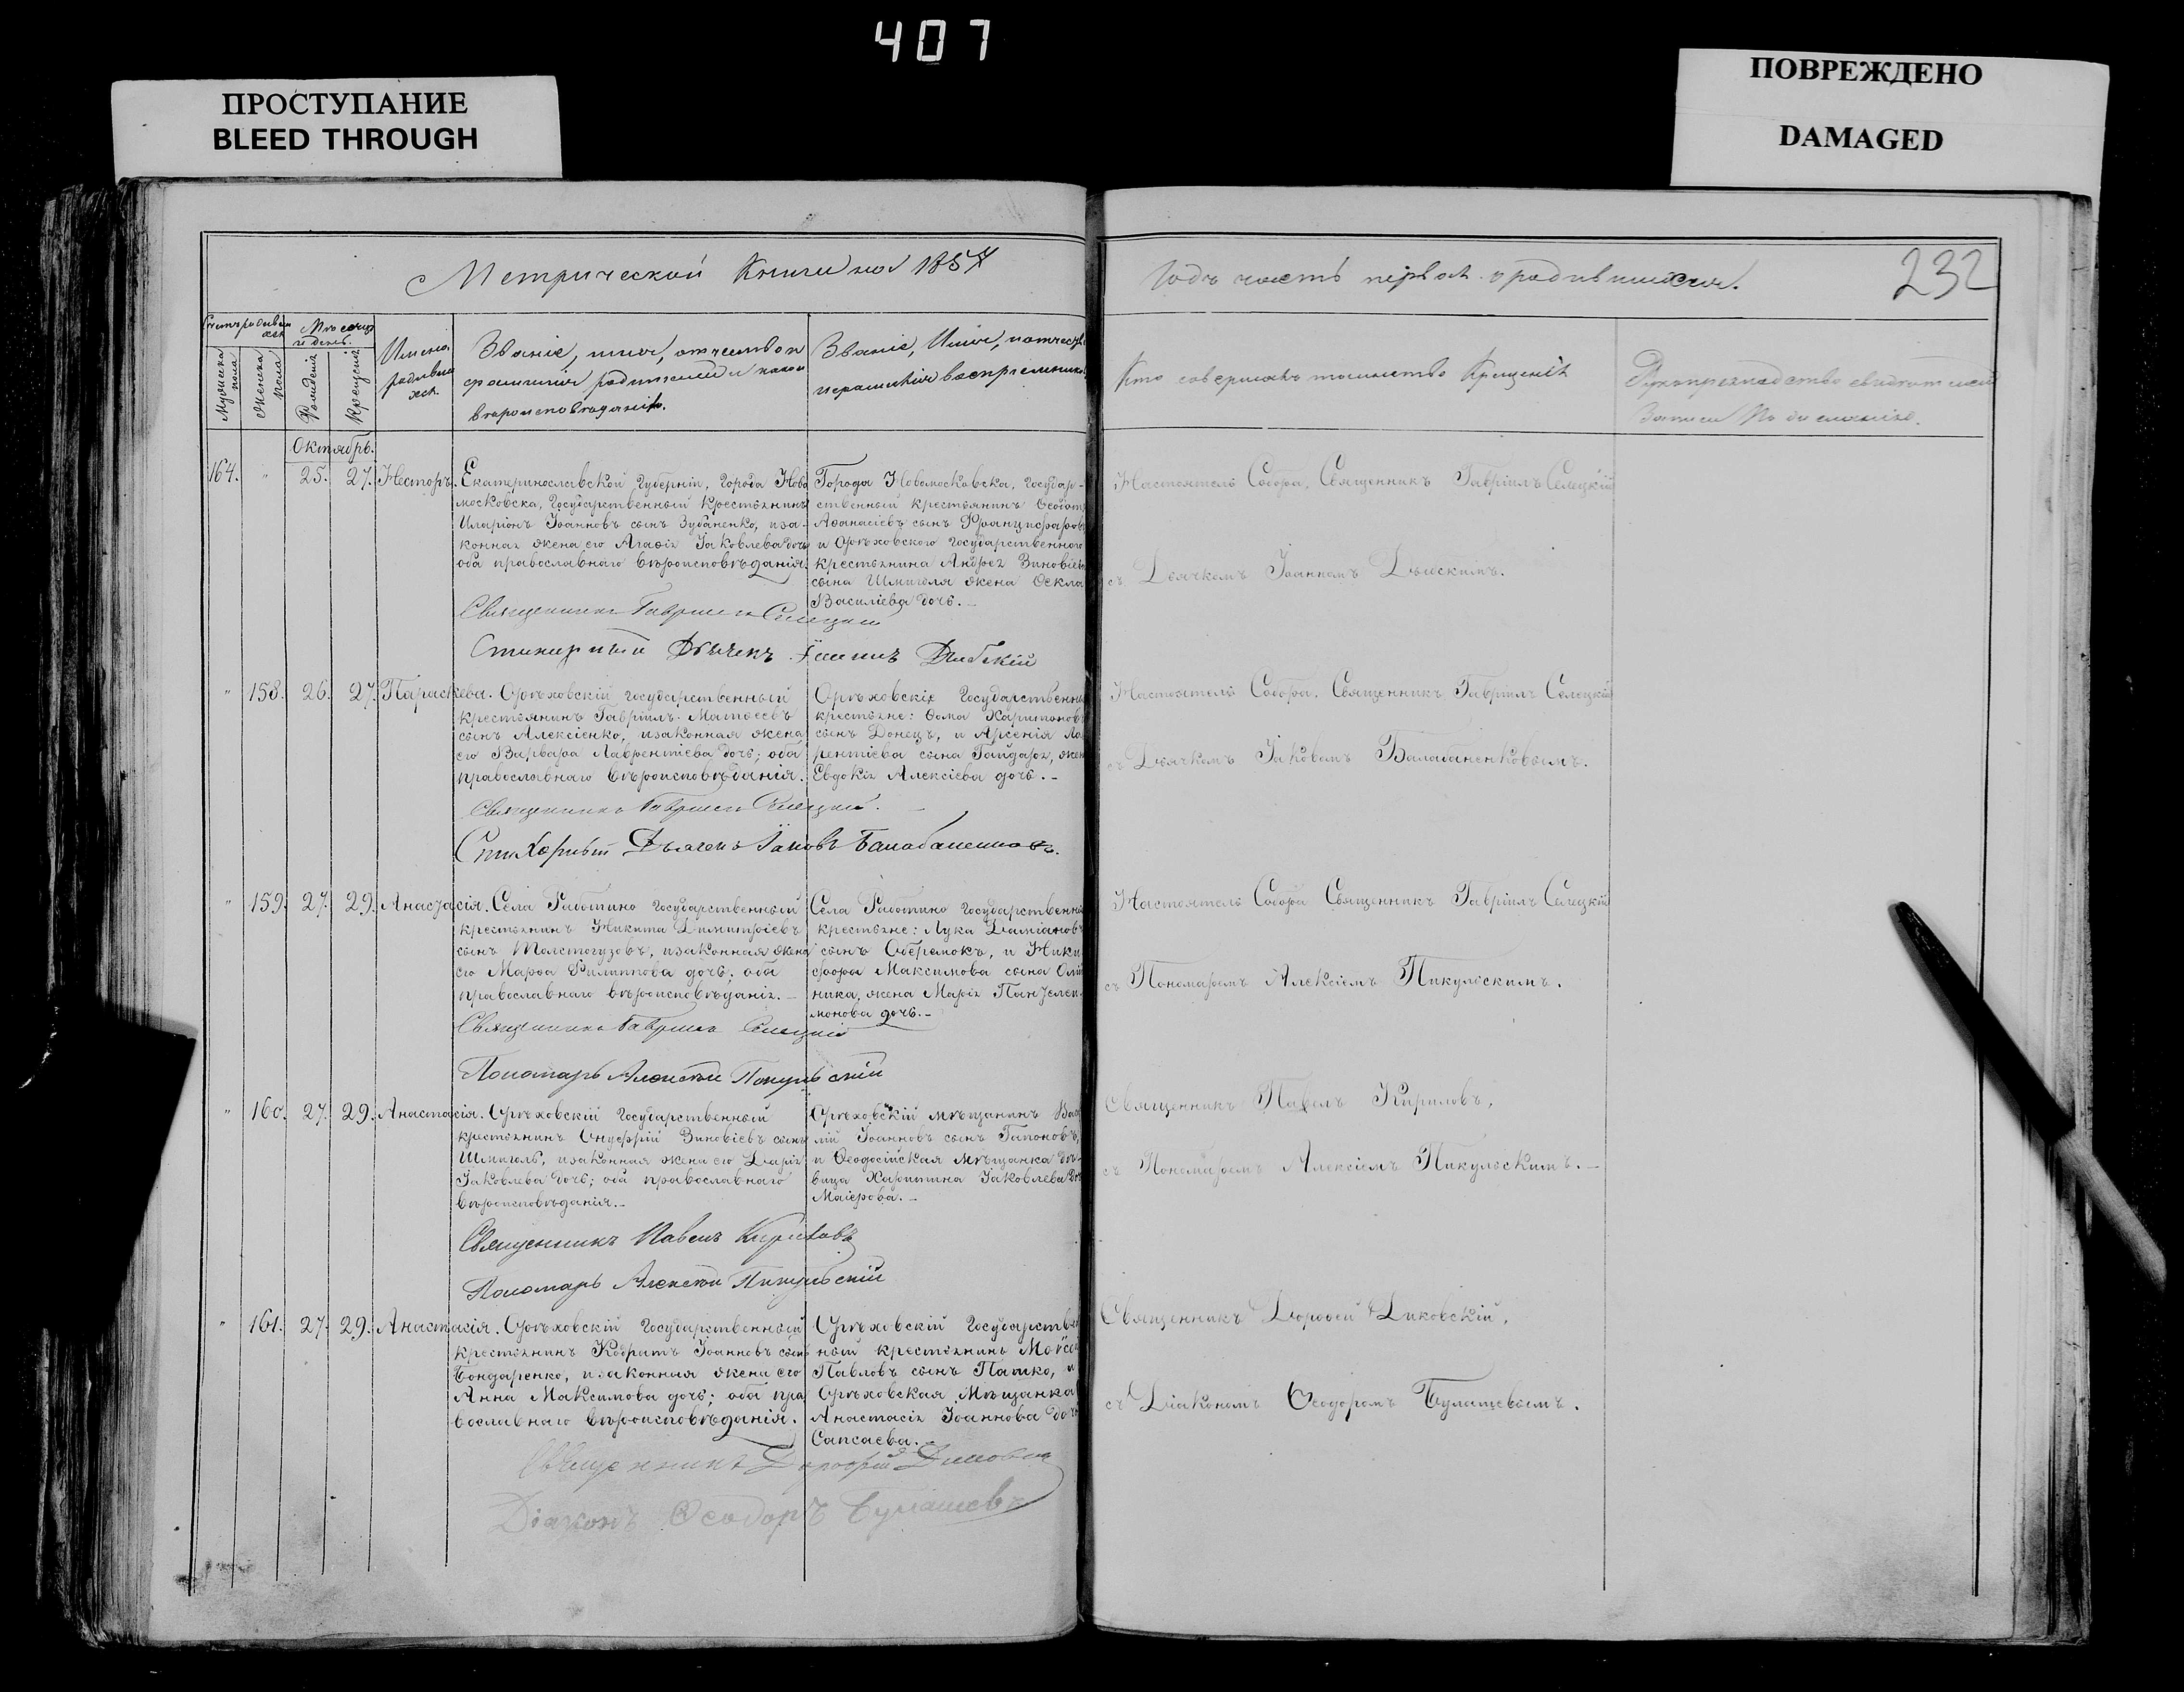 407
ПРОСТУПАНИЕ
BLEED THROUGH
ПОВРЕЖДЕНО
DAMAGED
Метрической Книги на 1857
Годъ часть первая о родившихся.
232
Мужеска пола
Женска пола
Мѣсяцъ и день.
Рожденія
Крещенія
Имена родивших
хся.
Званіе, имя, отчество и
фамилія родителей и какого
вѣроисповѣданія.
Званіе, Имя, отчест
и фамилія воспріемник
Кто совершалъ таинство Крещенія
Рукоприкладство свидѣтелей
Записи по желанію.
Октябрь.
164. " 25. 27. Несторъ.
Екатеринославской Губерніи, города Ново
московска, Государственный Крестьянинъ
Иларіонъ Іоанновъ сынъ Зубаненко, и за-
конная жена его Агафія Іаковлева дочь
оба православнаго вѣроисповѣданія.
Города Новомосковска, Государ-
ственный крестьянинъ Ѳеодотъ
Аѳанасіевъ сынъ
и Орѣховского Государственного
крестьянина Андрея Зиновіе
сына Шмиголя жена Ѳекла
Василіева дочь.-
Настоятель Собора, Священникъ Гавріилъ Селецкій
съ Дьячкомъ Іоанномъ
Священникъ Гавріилъ Селецкій
Стихарный Дьячекъ Іоаннъ
" 158. 26. 27. Параскева.
Орѣховскій государственный
крестьянинъ Гавріилъ Матѳеевъ
сынъ Алексіенко, и законная жена
его Варвара Лаврентіева дочь; оба
православнаго вѣроисповѣданія.
Орѣховскіе Государственны
крестьяне: Ѳома Харитоновъ
сынъ Донецъ, и Арсенія Ла
рентіева сына Гайдаря, жен
Евдокія Алексіева дочь.-
Настоятель Собора, Священникъ Гавріилъ Селецкій
съ Дьячкомъ Іаковомъ Балабаненковымъ.
Священникъ Гавріилъ Селецкій.
Стихарный Дьячекъ Іаковъ Балабаненковъ.
" 159. 27. 29. Анастасія.
Села Работино Государственный
крестьянинъ Никита Димитріевъ
сынъ Толстогузовъ, и законная жена
его Марфа Филиппова дочь; оба
православнаго вѣроисповѣданія.-
Села Работино Государственны
крестьяне: Лука Даміановъ
сынъ Оберемокъ, и Ники
фора Максимова сына Олій
ника, жена Марія Пантелей
монова дочь.-
Настоятель Собора Священникъ Гавріилъ Селецкій
съ Пономаремъ Алексіемъ Пикульскимъ.
Священникъ Гавріилъ Селецкій
Пономарь Алексѣй Пикульскій
" 160. 27. 29. Анастасія.
Орѣховскій Государственный
крестьянинъ Онуфрій Зиновіевъ сынъ
Шмиголь, и законная жена его Дарія
Іаковлева дочь; оба православнаго
вѣроисповѣданія.-
Орѣховскій мѣщанинъ Васи
лій Іоанновъ сынъ Гапоновъ,
и Ѳеодосійская мѣщанка дѣ-
вица Харитина Іаковлева доч
Маіерова.-
Священникъ Павелъ Кириловъ,
съ Пономаремъ Алексіемъ Пикульскимъ.-
Священникъ Павелъ Кириловъ
Пономарь Алексѣй Пикульскій
" 161. 27. 29. Анастасія.
Орѣховскій Государственный
крестьянинъ Кодратъ Іоанновъ сынъ
Бондаренко, и законная жена его
Анна Максимова дочь; оба пра
вославнаго вѣроисповѣданія.
Орѣховскій Государствен
ный крестьянинъ Моѵсей
Павловъ сынъ Патко, и
Орѣховская Мѣщанка
Анастасія Іоаннова доч
Сапсаева.-
Священникъ Дороѳей Диковскій,
съ Діакономъ Ѳеодоромъ Булашевымъ.
Священникъ Дороѳей Диковскій
Діаконъ Ѳеодоръ Булашевъ